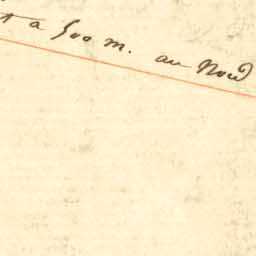 t a 500 m. au Nord